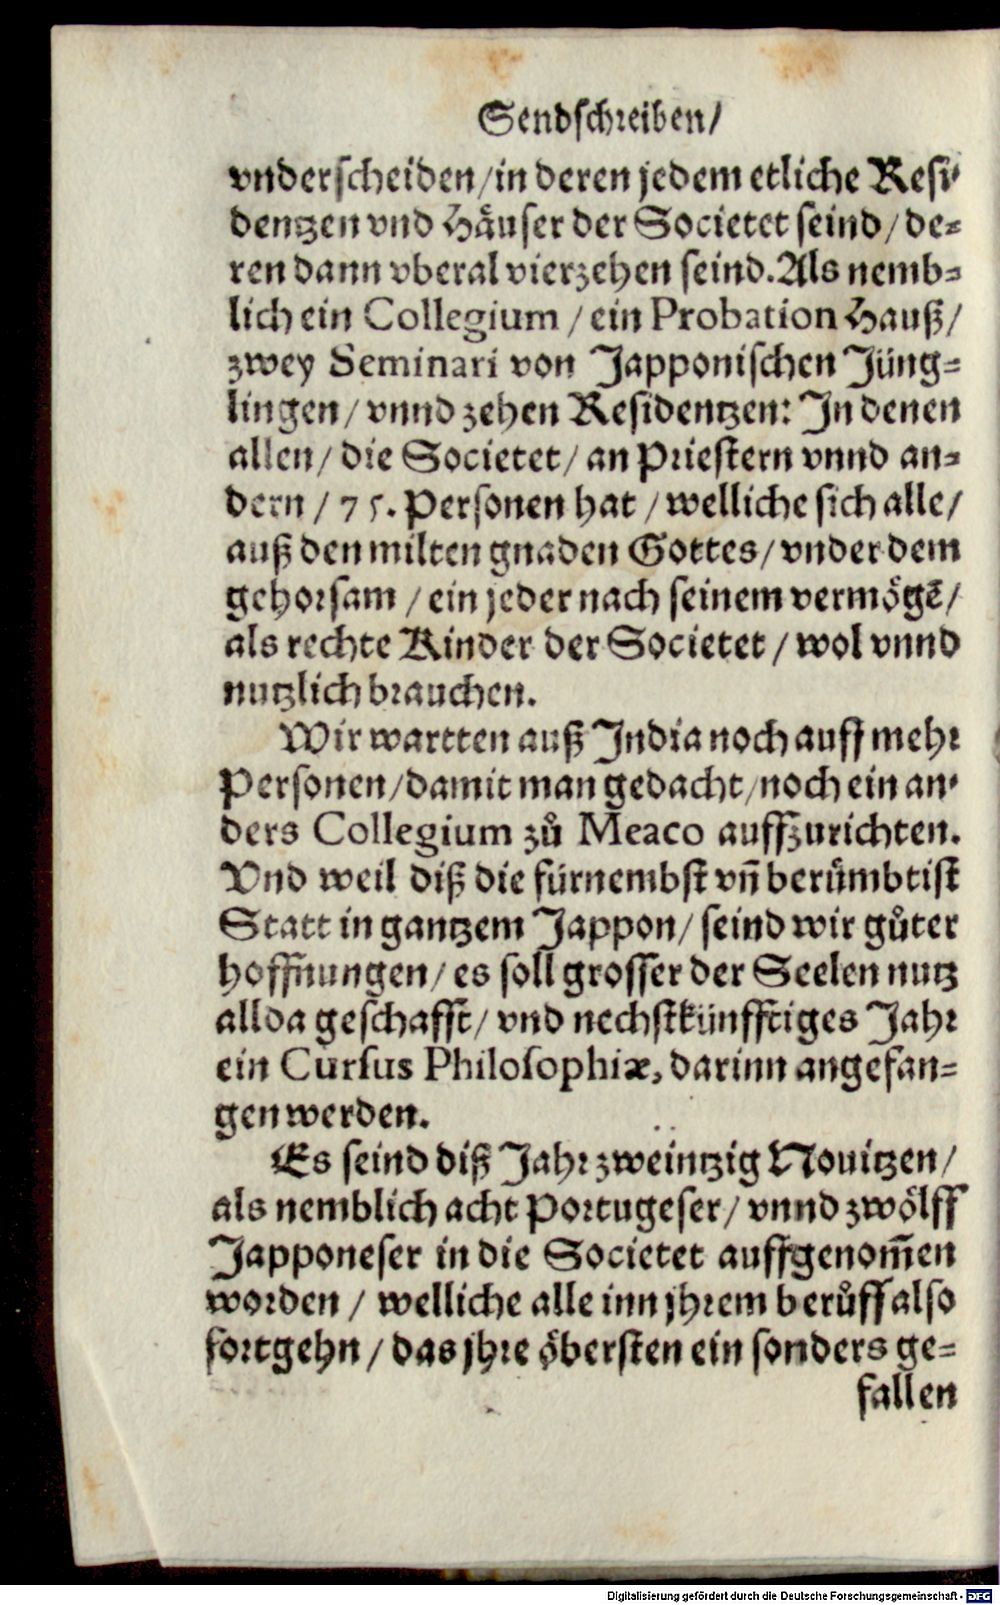 Sendschreiben/
vnderscheiden/in deren jedem etliche Resi-
dentzen vnd Häuser der Societet seind/de-
ren dann vberal vierzehen seind. Als nemb-
lich ein Collegium / ein Probation Hauß/
zwey Seminari von Japponischen Jüng-
lingen/ vnnd zehen Residentzen: In denen
allen/ die Societet/ an Priestern vnnd an-
dern / 75. Personen hat / welliche sich alle/
auß den milten gnaden Gottes/ vnder dem
gehorsam / ein jeder nach seinem vermögē/
als rechte Kinder der Societet / wol vnnd
nutzlich brauchen.
Wir wartten auß India noch auff mehr
Personen/damit man gedacht/noch ein an-
ders Collegium zů Meaco auffzurichten.
Vnd weil diß die fürnembst vñ berümbtist
Statt in gantzem Jappon/ seind wir gůter
hoffnungen/ es soll grosser der Seelen nutz
allda geschafft/ vnd nechstkünfftiges Jahr
ein Cursus Philosophiæ, darinn angefan-
gen werden.
Es seind diß Jahr zweintzig Nouitzen/
als nemblich acht Portugeser/ vnnd zwölff
Japponeser in die Societet auffgenom̄en
worden / welliche alle inn jhrem berůff also
fortgehn / das jhre öbersten ein sonders ge-
fallen
Digitalisierung gefördert durch die Deutsche Forschungsgemeinschaft - DFG